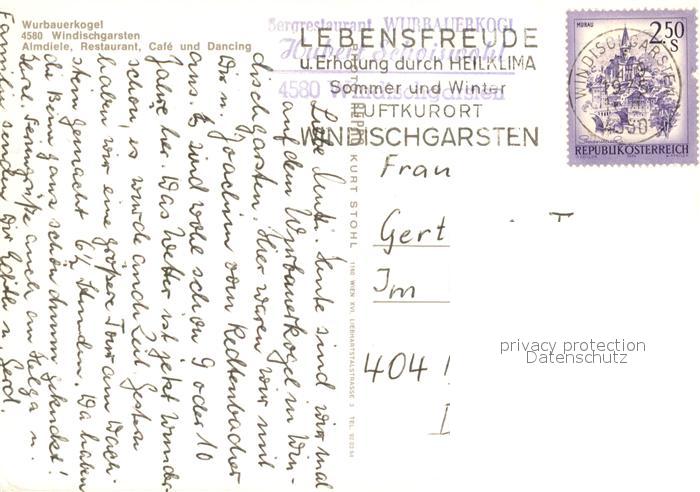 Wurbauerkogel
4580 Windischgarsten
Almdiele, Restaurant, Café und Dancing
Bergrestaurant WURBAUERKOGL
Hubert
4580 Windischgarsten
LEBENSFREUDE
u. Erholung durch HEILKLIMA
Sommer und Winter
LUFTKURORT
WINDISCHGARSTEN
MURAU
2.50
S
REPUBLIK ÖSTERREICH
WINDISCHGARSTEN
4580
KURT STOHL 1160 WIEN XVI, LIEBHARTSTALSTRASSE 3 TEL.
Liebe Muti. Heute sind wir mal
auf dem Wurbauerkogel in Win-
dischgarsten. Hier waren wir mit
Dir u. Joachim vom Redtenbacher
aus. Es sind wohl schon 9 oder 10
Jahre her. Das Wetter ist jetzt wunder-
schön, es wurde auch Zeit. Gestern
haben wir eine größere Tour am Wach-
stein gemacht 6½ Stunden. Da haben
die Beine ganz schön drunter gekündet!
Feriengrüße auch an Helga u.
Familie senden Dir Edith u. Gerd.
Frau
Gert
Im
404
privacy protection
Datenschutz